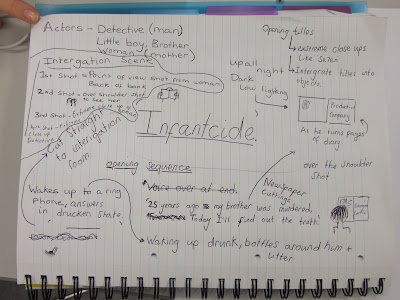 Actors - Detective (man)
Little boy, Brother
Woman (mother)
Intergation Scene
1st Shot = Point of view shot from woman
Back of
2nd Shot - over shoulder shot
to see her
3rd shot - Extreme close up of
Detective
Cut straight
to intergation
room.
Infantcide.
up all
night
Dark
Low lighting
Opening titles
extreme close ups
Like Se7en
Intergrate titles into
objects.
Production
Company
As he turns pages of
diary
over the shoulder
shot
opening sequence
Voice over at end.
'25 years ago my brother was murdered,
Today I'll find out the truth.'
Newspaper
cuttings
Wakes up to a ring
phone, answers
in drucken state.
Waking up drunk, bottles around him +
litter